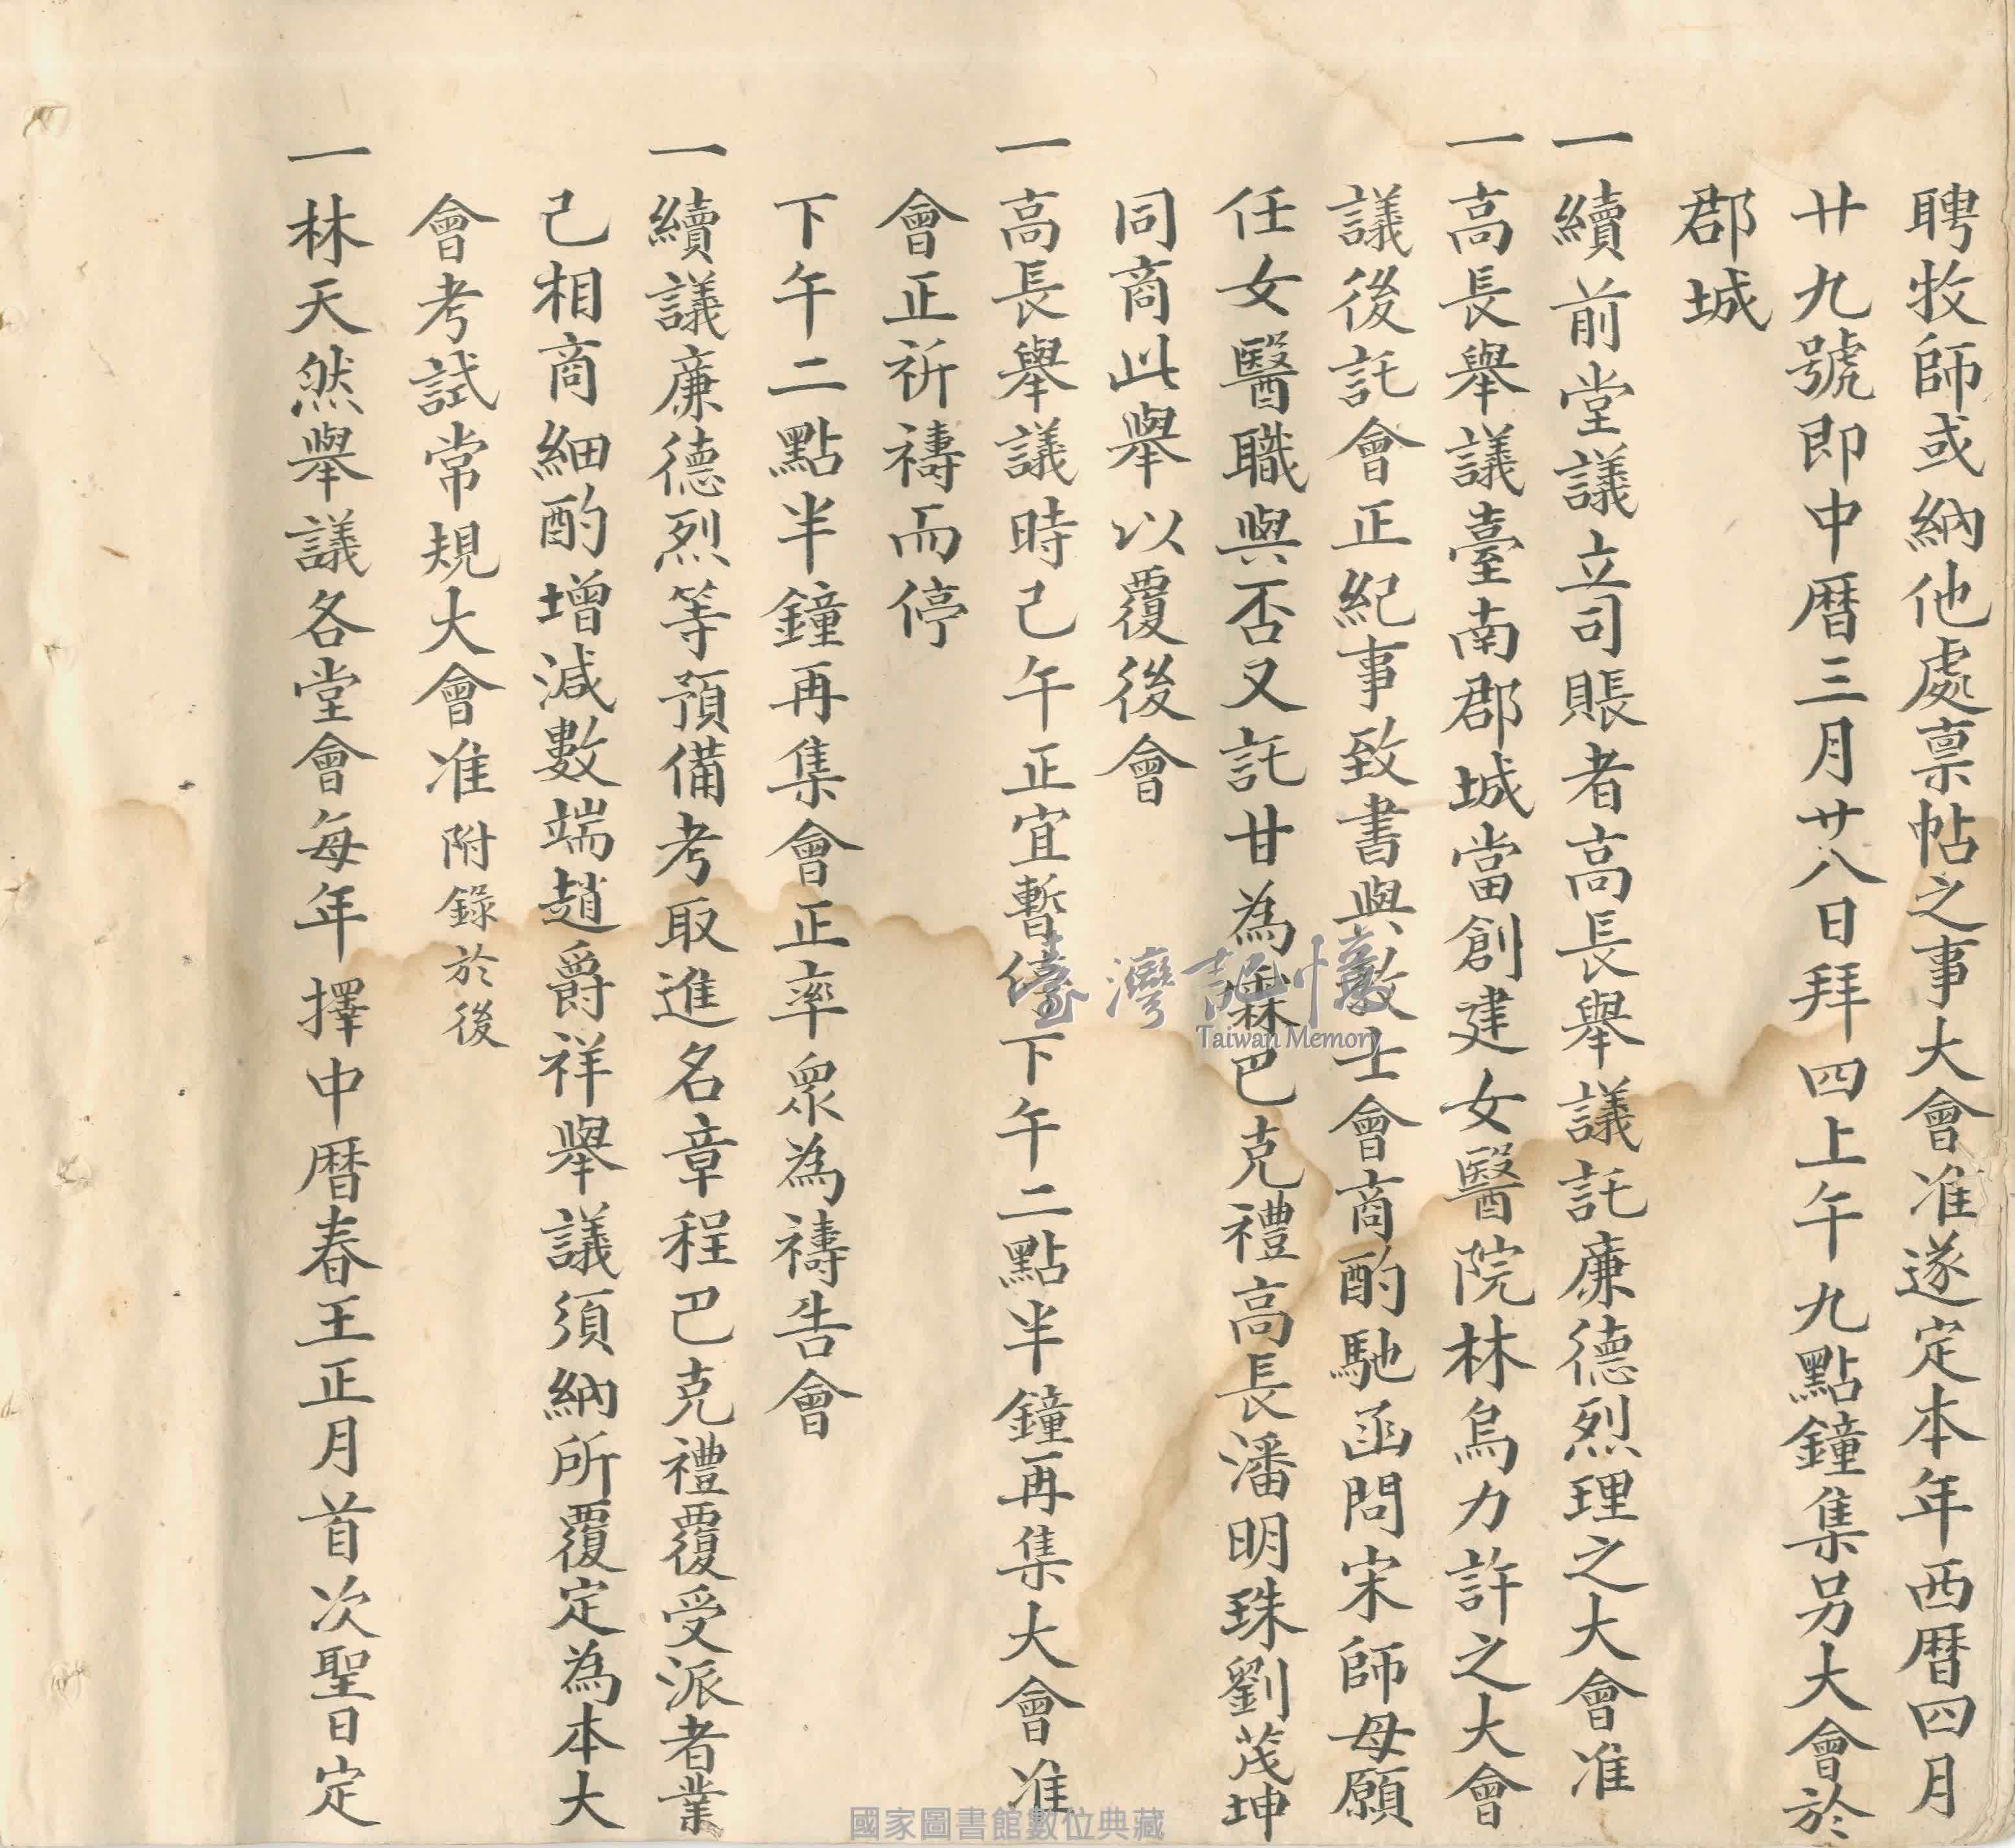 聘牧師或納他處禀帖之事大會准遂定本年西曆四月
廿九號即中曆三月廿八日拜四上午九點鐘集另大會於
郡城
一續前堂議立司賬者高長舉議託廉德烈理之大會准
一高長舉議臺南郡城當創建女醫院林烏力許之大會
議後託會正紀事致書與教士會商酌馳函問宋師母願
任女醫職與否又託甘為霖巴克禮高長潘明珠劉茂坤
同商此舉以覆後會
一高長舉議時己午正宜暫停下午二點半鐘再集大會准
會正祈禱而停
下午二點半鐘再集會正率眾為禱告會
一續議廉德烈等預備考取進名章程巴克禮覆受派者業
己相商細酌增減數端趙爵祥舉議須納所覆定為本大
會考試常規大會准附錄於後
一林天然舉議各堂會每年擇中曆春王正月首次聖日定
臺灣記憶
Taiwan Memory
國家圖書館數位典藏